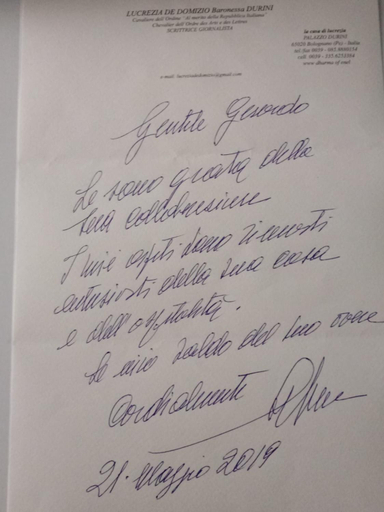 LUCREZIA DE DOMIZIO Baronessa DURINI
Cavaliere dell'Ordine "al merito della Repubblica Italiana"
Chevalier dell'Ordre des Arts et des Lettres
SCRITTRICE GIORNALISTA
la casa di lucrezia
PALAZZO DURINI
65020 Bolognano (Pe) - Italia
Gentile Gerardo
Le sono grata della
Sua collaborazione
I miei ospiti sono rimasti
entusiasti della sua casa
e dell'ospitalità.
Le invio saldo del suo
Cordialmente
21. Maggio 2019